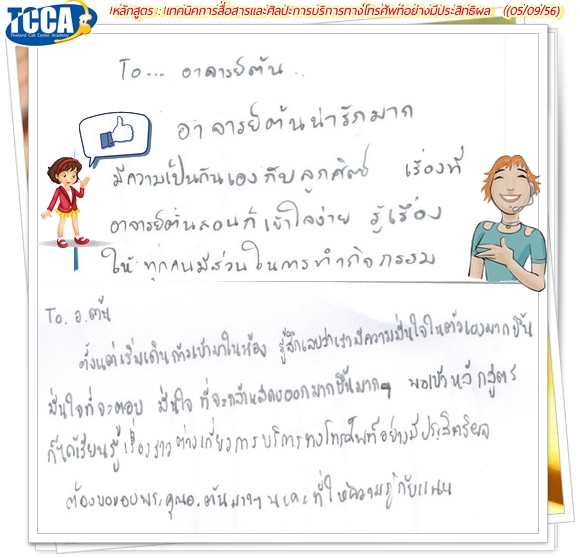 TCCA
Thailand Call Center Academy
หลักสูตร : เทคนิคการสื่อสารและศิลปะการบริการทางโทรศัพท์อย่างมีประสิทธิผล ((05/09/56)
To... อาจารย์ต้น..
อาจารย์ต้นน่ารักมาก
มีความเป็นกันเองกับลูกศิษย์ เรื่องที่
อาจารย์ต้นสอนก็เข้าใจง่าย รู้เรื่อง
ให้ทุกคนมีส่วนในการทำกิจกรรม
To. อ.ต้น
ตั้งแต่เริ่มเดินก้าวเข้ามาในห้อง รู้สึกเลยว่าเรามีความมั่นใจในตัวเองมากขึ้น
มั่นใจที่จะตอบ มั่นใจที่จะกล้าแสดงออกมากขึ้นมากๆ พอเข้าหลักสูตร
ก็ได้เรียนรู้เรื่องราวต่างเกี่ยวการบริการทางโทรศัพท์อย่างมีประสิทธิผล
ต้องขอขอบพระคุณอ.ต้นมากๆ นะคะที่ให้ความรู้กับแนน